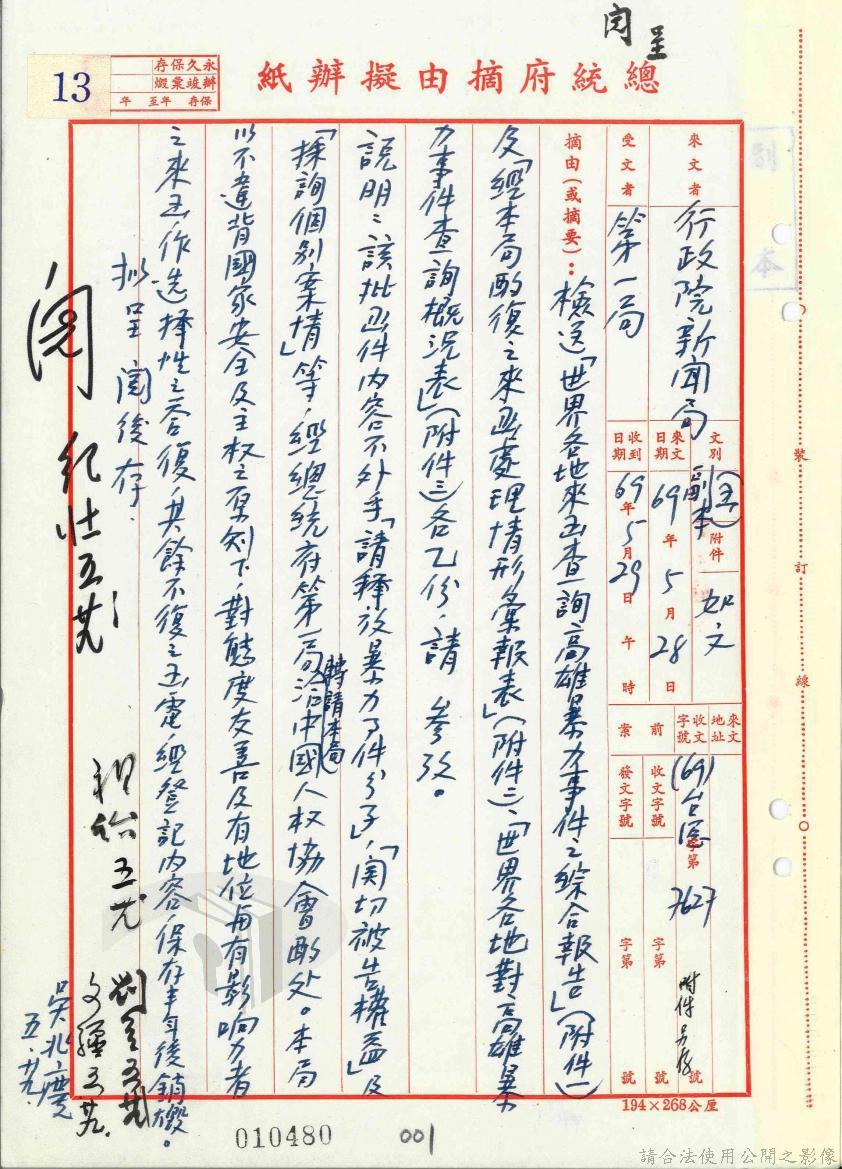 閱呈
13
永久保存
辦竣棄燬
保存 年至 年
總統府摘由擬辦紙
副本
來文者
行政院新聞局
受文者
第一局
文別
函
副本
附件
如文
來文日期
69年5月28日
收到日期
69年5月29日午時
來文地址
收文字號
(69)台字第7627號
附件另存
前案
收文字號
字第號
發文字號
字第號
摘由(或摘要):檢送「世界各地來函查詢高雄暴力事件之綜合報告」(附件一)
及「經本局酌復之來函處理情形彙報表」(附件二)、「世界各地對高雄暴
力事件查詢概況表」(附件三)各乙份,請 參考。
說明:該批函件內容不外乎「請釋放暴力事件分子」,「關切被告權益」及
「探詢個別案情」等,經總統府第一局轉請本局洽中國人权協會酌处。本局
以不違背國家安全及主权之原則下,對態度友善及有地位與有影响力者
之來函作选擇性之答復,其餘不復之函電,經登記內容,保存半年後銷燬。
擬呈 閱後存.
閱
五.廿九.
010480
001
194×268公厘
裝訂線
請合法使用公開之影像